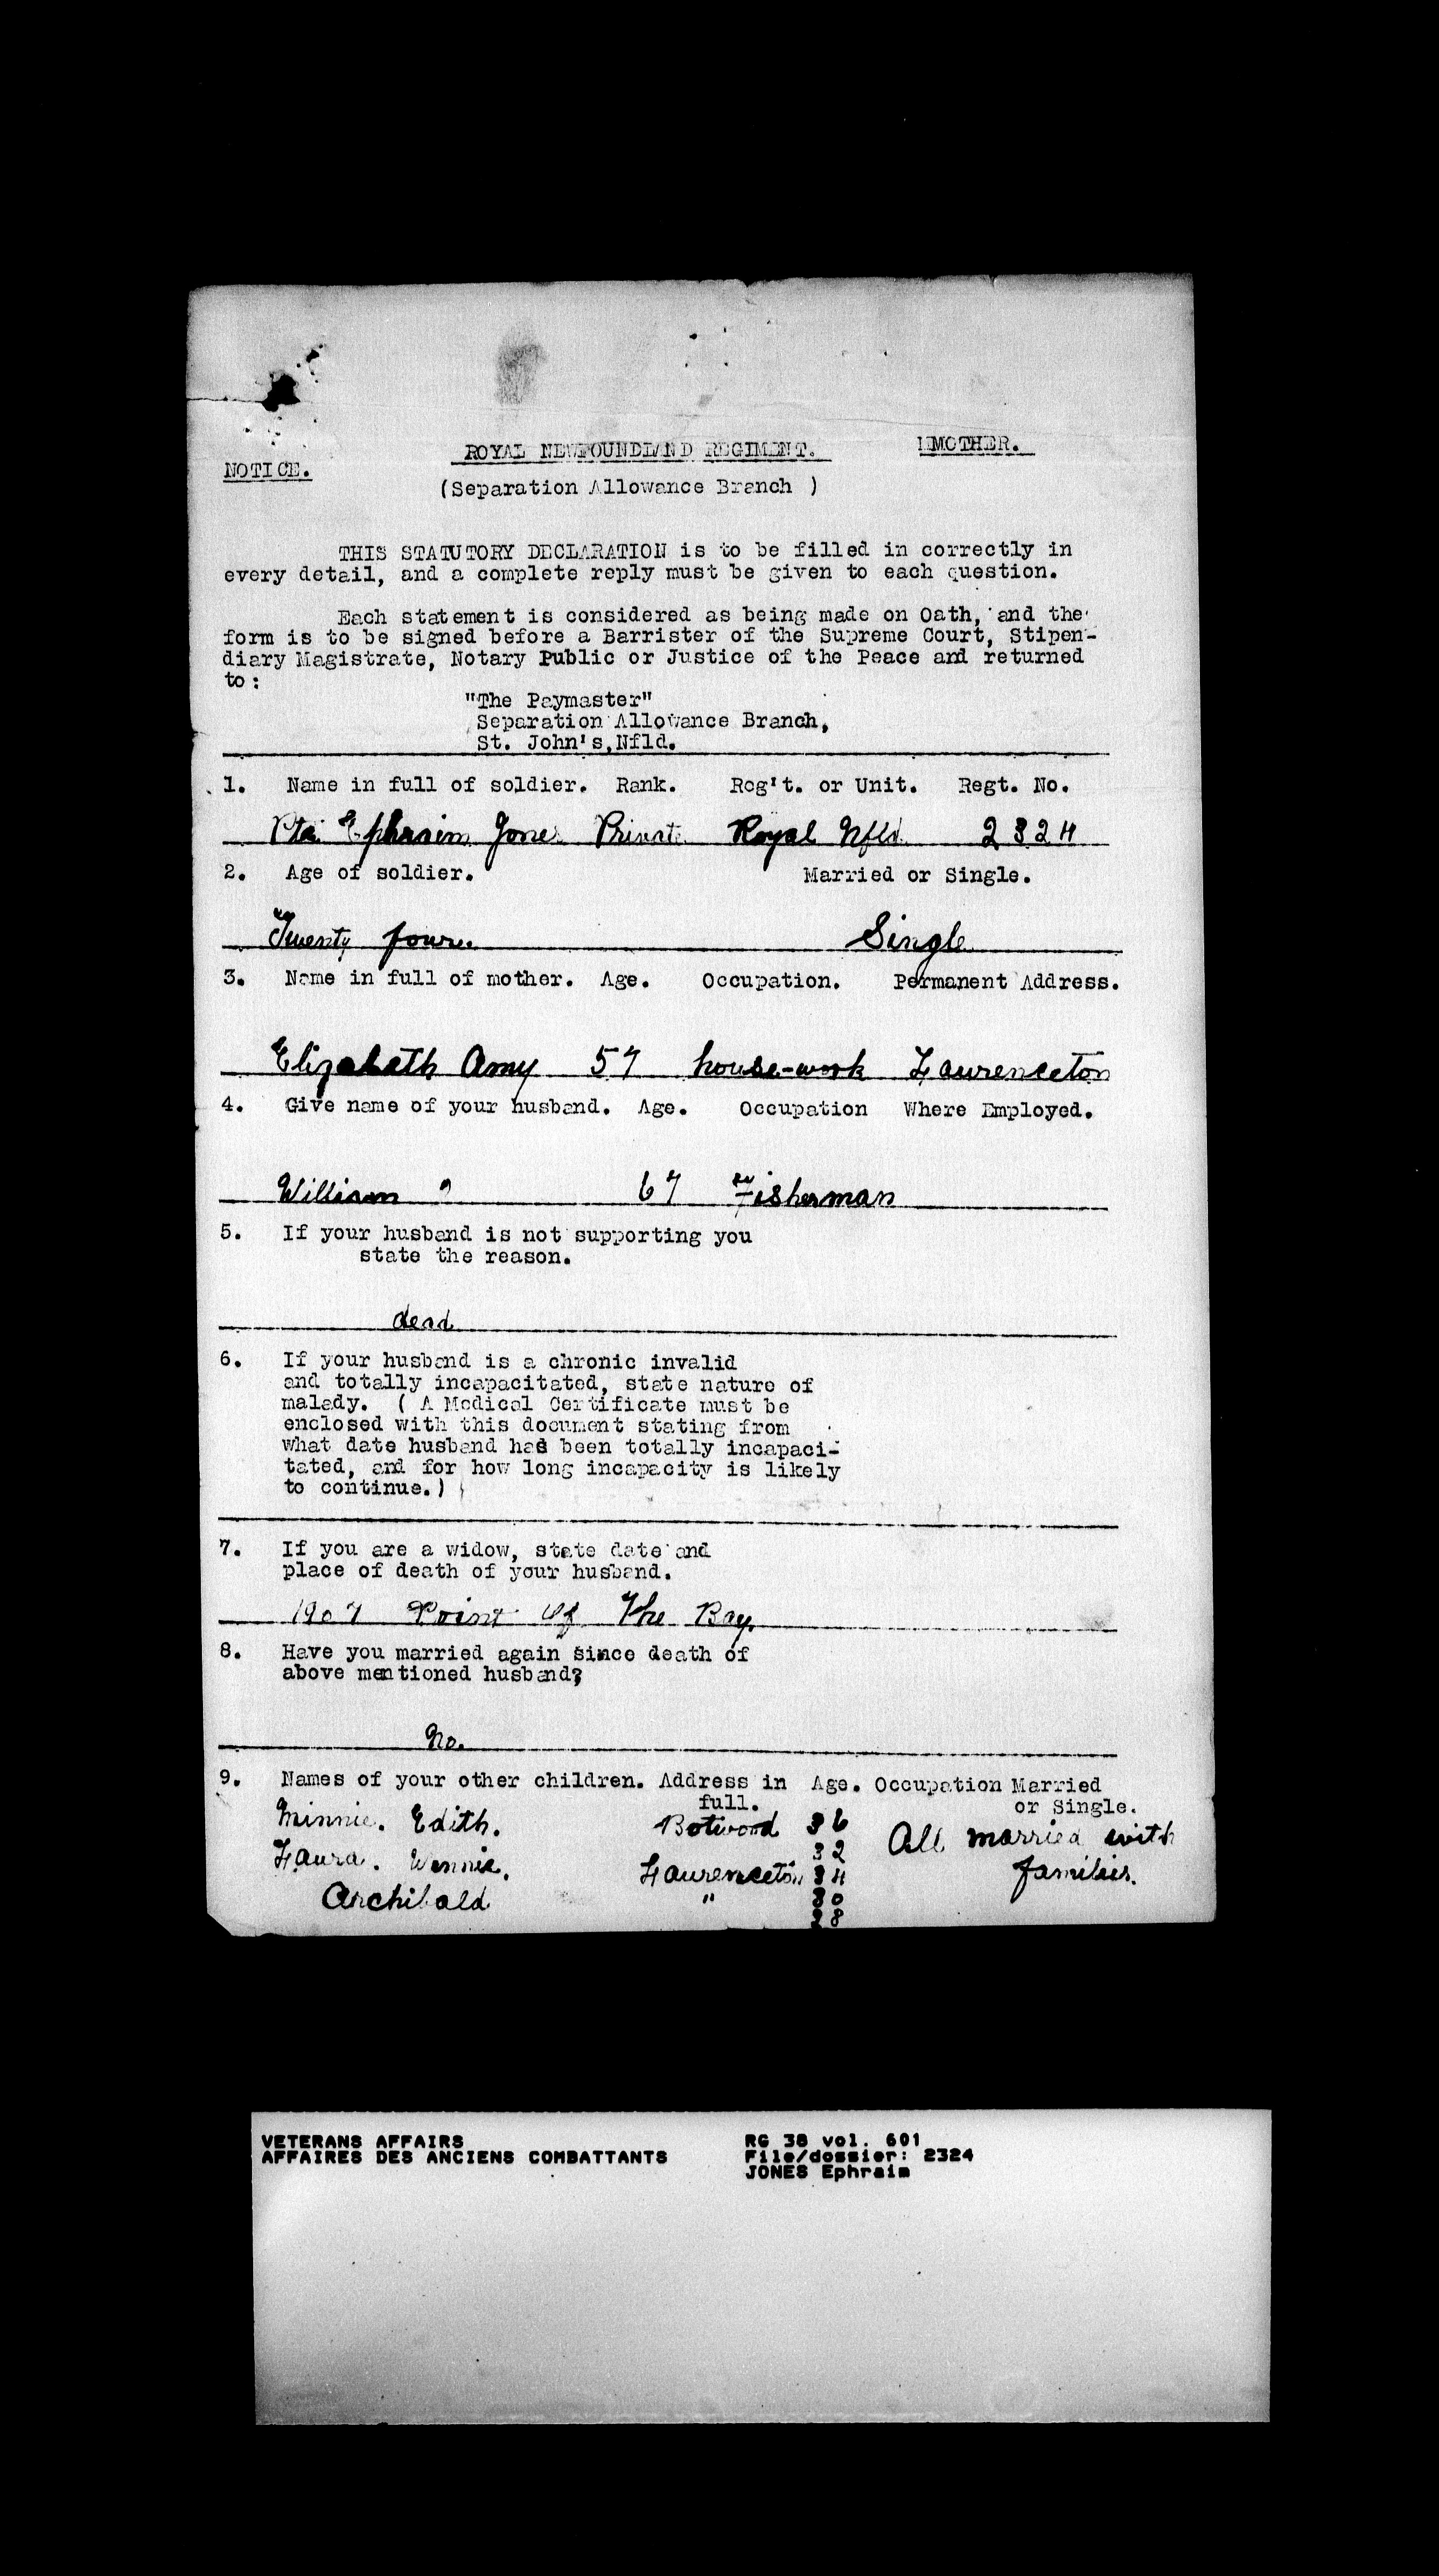 MOTHER.
ROYAL NEWFOUNDLAND REGIMENT.
NOTICE.
(Separation Allowance Branch )
THIS STATUTORY DECLARATION is to be filled in correctly in
every detail, and a complete reply must be given to each question.
Each statement is considered as being made on Oath, and the
form is to be signed before a Barrister of the Supreme Court, Stipen-
diary Magistrate, Notary Public or Justice of the Peace and returned
to:
"The Paymaster"
Separation Allowance Branch,
St. John's,Nfld.
1. Name in full of soldier. Rank. Reg't. or Unit. Regt. No.
Pte Ephraim Jones Private Royal Nfld. 2324
2. Age of soldier. Married or Single.
Twenty four. Single
3. Name in full of mother. Age. Occupation. Permanent Address.
Elizabeth Amy 57 house-work Laurenceton
4. Give name of your husband. Age. Occupation Where Employed.
William " 67 Fisherman
5. If your husband is not supporting you
state the reason.
dead
6. If your husband is a chronic invalid
and totally incapacitated, state nature of
malady. ( A Medical Certificate must be
enclosed with this document stating from
what date husband had been totally incapaci-
tated, and for how long incapacity is likely
to continue.)
7. If you are a widow, state date and
place of death of your husband.
1907 Point of The Bay.
8. Have you married again since death of
above mentioned husband?
No.
9. Names of your other children. Address in Age. Occupation Married
full. or Single.
Minnie. Edith. Botwood 36
32 All married with
Laura. Winnie. Laurenceton 34 families.
Archibald " 30
28
VETERANS AFFAIRS RG 38 vol. 601
AFFAIRES DES ANCIENS COMBATTANTS File/dossier: 2324
JONES Ephraim